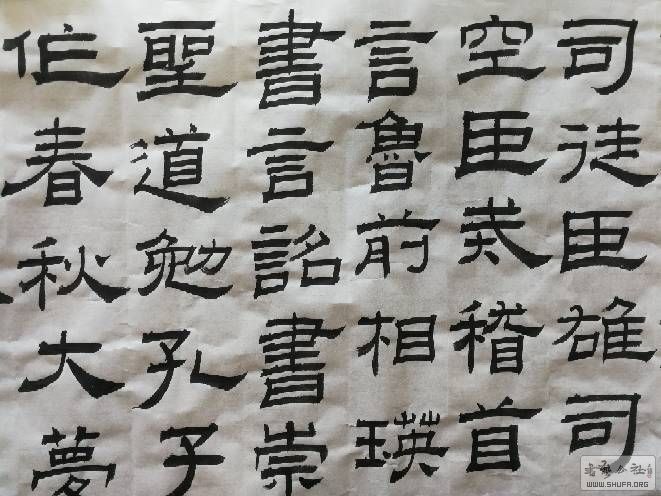 司徒臣雄司
空臣戒稽首
言魯前相瑛
書言詔書崇
聖道勉孔子
作春秋大夢
书艺公社
WWW.SHUFA.ORG